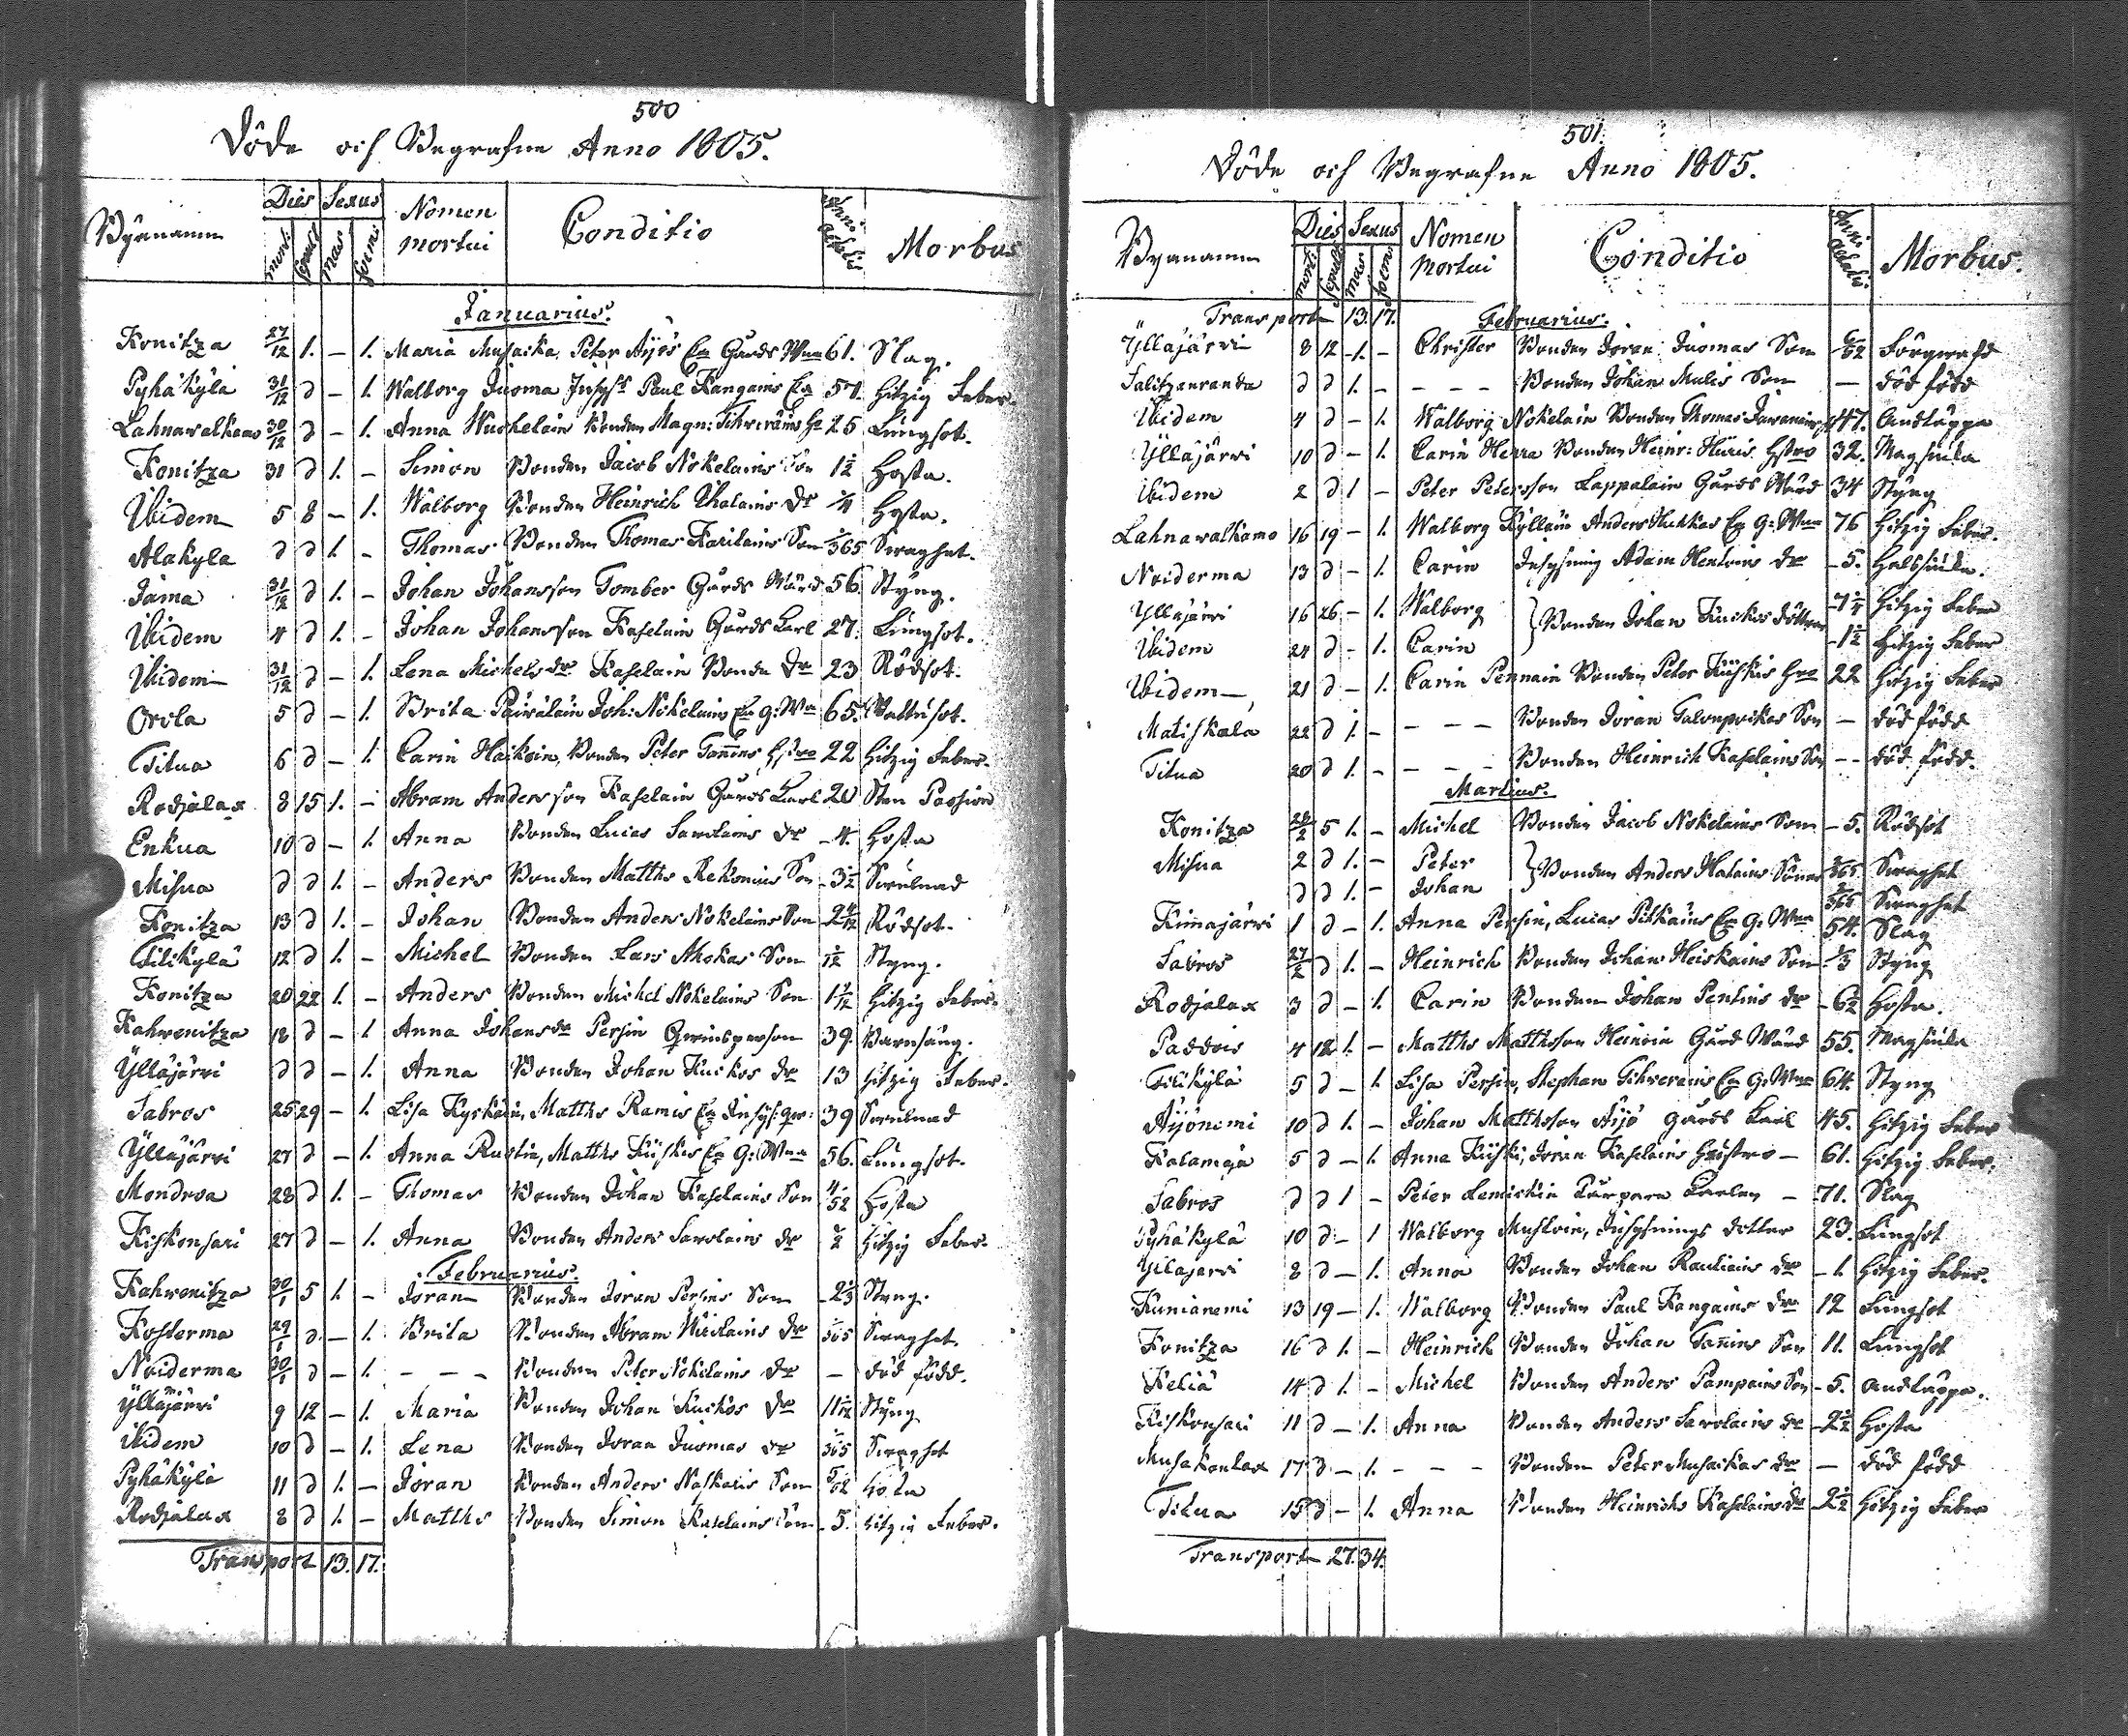 500
Döde och Begrafne Anno 1805.
Byanamn Dies Sexus Nomen mortui Conditio Anni aetatis Morbus
mort: sepult mas foem:
Januarius.
Konitza 27/12 1. – 1. Maria Musacka, Peter Äyös Ea Gårds Wna 61. Slag.
Pyhäkylä 31/12 d – 1. Walborg Juoma Paul Kangains Ea 57. Hitzig Feber.
Lahnawalkamo 30/12 d – 1. Anna Bonden Magn: 25 Lungsot.
Konitza 31 d 1. – Simon Bonden Jacob Nokelains Son 1 1/2 Hosta.
Ibidem 5 8 – 1. Walborg Bonden Heinrich Dr 1/4 Hosta.
Alakyla d d 1. – Thomas Bonden Thomas Karilains Son /365 Swaghet.
Jama 31/12 d 1. – Johan Johansson Tomber Gårds Wärd 56. Styng.
Ibidem 4 d 1. – Johan Johansson Kaselain Gårds Karl 27. Lungsot.
Ibidem 31/12 d – 1. Lena Michelsdr Kaselain Bonde Dr 23 Rödsot.
Orola 5 d – 1. Brita Päiväläin Joh: Nokelains Ea g: Wa 65. Wattusot.
Titua 6 d – 1. Carin Haikoin, Bonden Peter Tanins Hstro 22 Hitzig Feber.
Rodjalax 8 15 1. – Abram Andersson Kaselain Gårds Karl 20 Sten Passion
Enkua 10 d – 1. Anna Bonden Lucas Sawolains Dr –4. Hosta
Misua d d 1. – Anders Bonden Matths Rekonius Son –3 1/2 Swulnad
Konitza 13 d 1. – Johan Bonden Anders Nokelains Son –2 /12 Rödsot.
Tilikylä 12 d 1. – Michel Bonden Lars Mokas Son 1/2 Styng.
Konitza 20 22 1. – Anders Bonden Michel Nokelains Son 1 /12 Hitzig Feber.
Kahwenitza 18 d – 1 Anna Johansdr Persin Qwinsperson 39. Barnsäng.
Ylläjärvi d d – 1. Anna Bonden Johan Kuckos Dr 13 Hitzig Feber.
Sabros 25 29 – 1. Lisa Kyskäin, Matths Ramis Ea 39 Swulnad
Ylläjärvi 27 d – 1. Anna Rustin, Matths Kiiskis Ea G: Wna 56. Lungsot.
Mondroa 28 d 1. – Thomas Bonden Johan Kaselains Son /52 Hosta
Kiskonsari 27 d – 1. Anna Bonden Anders Sawolains Dr 1/2 Hitzig Feber.
Februarius.
Kahwonitza 30/1 5 1. – Jöran Bonden Jöran Persins Son –2 /3 Styng.
Kosterma 29/1 d. – 1. Brita Bonden Abram Dr /365 Swaghet.
Noiderma 30/1 d – 1. – – – Bonden Peter Nokelains Dr – död född.
Ylläjärvi 9 12 – 1. Maria Bonden Johan Kuckos Dr 11/12 Styng
ibidem 10 d – 1. Lena Bonden Jöran Juomas Dr /365 Swaghet
Pyhäkylä 11 d 1. – Jöran Bonden Anders Naskalis Son /52 Hosta
Rodjalax 8 d 1. – Matths Bonden Simon Kaselains Son –5. Hitzig Feber.
Transport 13. 17.
501.
Döde och Begrafne Anno 1805.
Byanamn Dies Sexus Nomen Mortui Conditio Anni aetatis Morbus.
mort: sepult mas foem:
Transport– 13. 17. Februarius.
Ylläjärvi 8 12 –1. – Christer Bonden Jöran Juomas Son /52
Salitzanranda d d 1. – – – – Bonden Johan Mulis Son – död född
Ibidem 4 d – 1. Walborg Nokelain Bonden Thomas 47. Andtäppa
Ylläjärvi 10 d – 1. Carin Herra Bonden Heinr: Huuris Hstro 32. Magsiuka
ibidem 2 d 1 – Peter Petersson Lappalain Gårds Wärd 34 Styng
Lahnawalkamo 16 19 – 1. Walborg Kylläin Anders Hukkas Ea G: Wna 76 Hitzig Feber.
Noiderma 13 d – 1. Carin Inhysning Adam Dr –5. Halssiuka.
Ylläjärvi 16 26 – 1. Walborg } Bonden Johan Kuckos döttrar –7 1/4 Hitzig Feber
Ibidem 24 d – 1. Carin –1 1/2 Hitzig Feber
Ibidem– 21 d – 1. Carin Pennain Bonden Peter Kiiskis Hro 22 Hitzig Feber
Matiskala 22 d 1. – – – – Bonden Jöran Talonpoikas Son – död född
Titua 20 d 1. – – – – Bonden Heinrich Kaselains Son – – död född.
Martius.
Konitza 28/2 5 1. – Michel Bonden Jacob Nokelains Son –5. Rödsot
Misua 2 d 1. – Peter } Bonden Anders Hatains Söner /365 Swaghet
d d 1. – Johan /365 Swaghet
Kimajärvi 1 d – 1. Anna Persin, Lucas Pitkäins Ea G: Wna 54. Slag
Sabros 27/2 d 1. – Heinrich Bonden Johan Heiskains Son /3 Styng
Rodjalax 3 d – 1. Carin Bonden Johan Pentins Dr –6 1/2 Hosta.
Paddois 4 12 1. – Matths Matthsson Heinoin Gård Wärd 55. Magsiuka
Tilikylä 5 d – 1. Lisa Persin, Stephan Tihwerains Ea G: Wna 64. Styng
Äyönemi 10 d 1. – Johan Matthsson Äyö Gårds Karl 45. Hitzig Feber
Kalamaja 5 d – 1. Anna Kiiski, Jöran Kaselains Hustro – 61. Hitzig Feber.
Sabros d d 1 – Peter Lemickin Karlen – 71. Slag
Pyhäkylä 10 d – 1 Walborg Mustoin, Inhysnings dotter 23. Lungsot
Ylläjärvi 8 d – 1. Anna Bonden Johan Rautiains Dr –1. Hitzig Feber.
Kunianemi 13 19 – 1. Walborg Bonden Paul Kangains Dr 12 Lungsot
Konitza 16 d 1. – Heinrich Bonden Johan Tanins Son 11. Lungsot
Keliä 14 d 1. – Michel Bonden Anders Pampains Son –5. Andtäppa.
Kiskonsari 11 d – 1. Anna Bonden Anders Sawolains Dr –2 1/2 Hosta
Musakanlax 17 d – 1. – – – Bonden Peter Musackas Dr – död född
Titua 15 d – 1. Anna Bonden Heinrichs Kaselains Dr –2 1/2 Hitzig Feber
Transport– 27. 34.